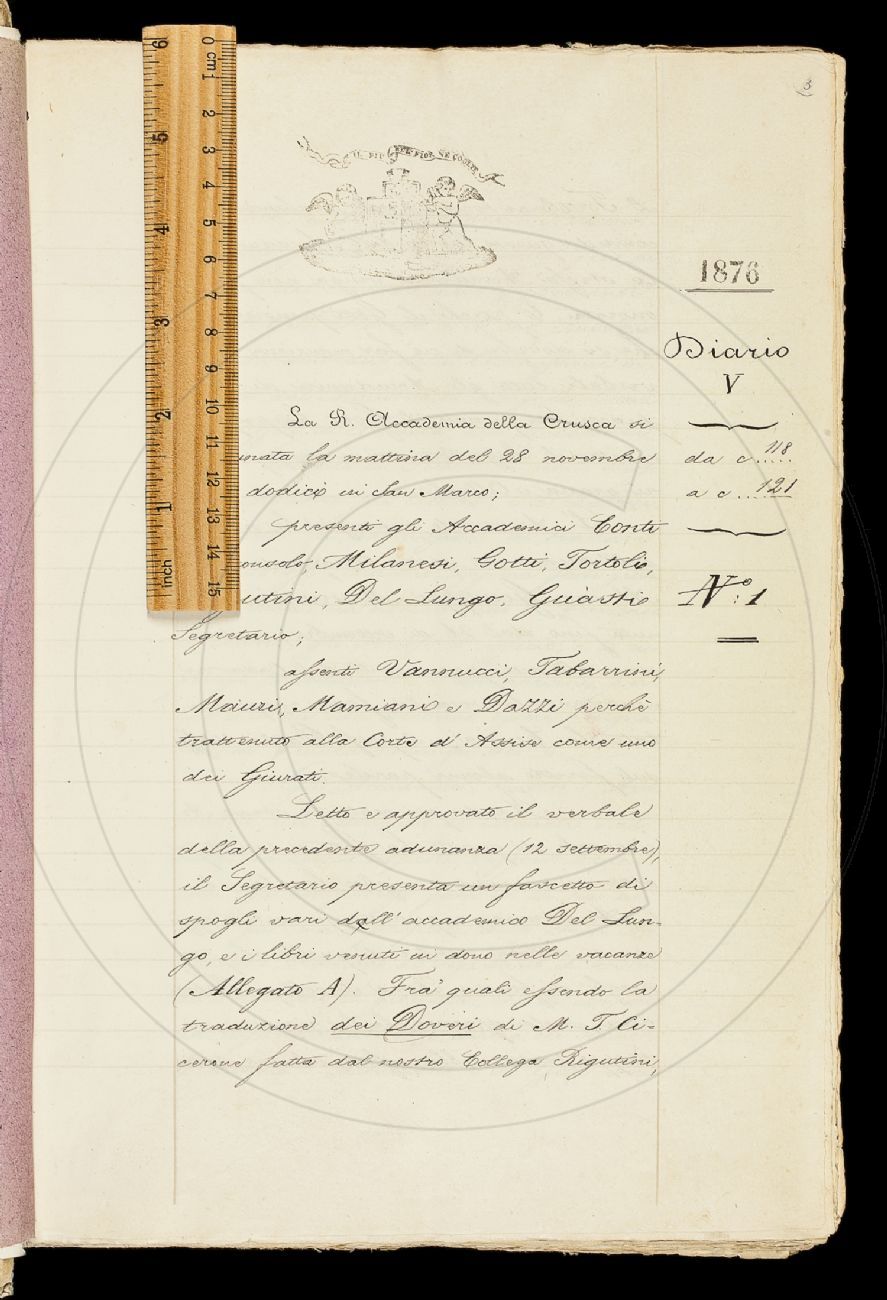 3
IL PIÙ BEL FIOR NE COGLIE
1876
Diario
V
da c.....118
a c....121
N.º 1
La R. Accademia della Crusca si
unata la mattina del 28 novembre
dodici in San Marco;
presenti gli Accademici Conti
onsolo, Milanesi, Gotti, Tortoli,
utini, Del Lungo, Guasti
Segretario;
assenti Vannucci, Tabarrini,
Mauri, Mamiani e Dazzi perchè
trattenuto alla Corte d'Assise come uno
dei Giurati.
Letto e approvato il verbale
della precedente adunanza (12 settembre),
il Segretario presenta un fascetto di
spogli vari dall'accademico Del Lun-
go, e i libri venuti in dono nelle vacanze
(Allegato A). Fra' quali essendo la
traduzione dei Doveri di M. T. Ci-
cerone fatta dal nostro Collega Rigutini,
0 cm 1 2 3 4 5 6 7 8 9 10 11 12 13 14 15
inch 1 2 3 4 5 6